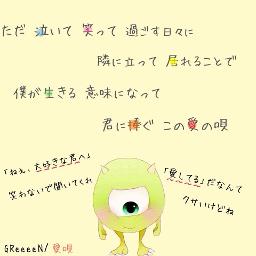 ただ 泣いて 笑って 過ごす日々に
隣に立って 居れることで
僕が生きる 意味になって
君に捧ぐ この愛の唄
「ねぇ、大好きな君へ」
笑わないで聞いてくれ
「愛してる」だなんて
クサいけどね
GReeeeN/愛唄